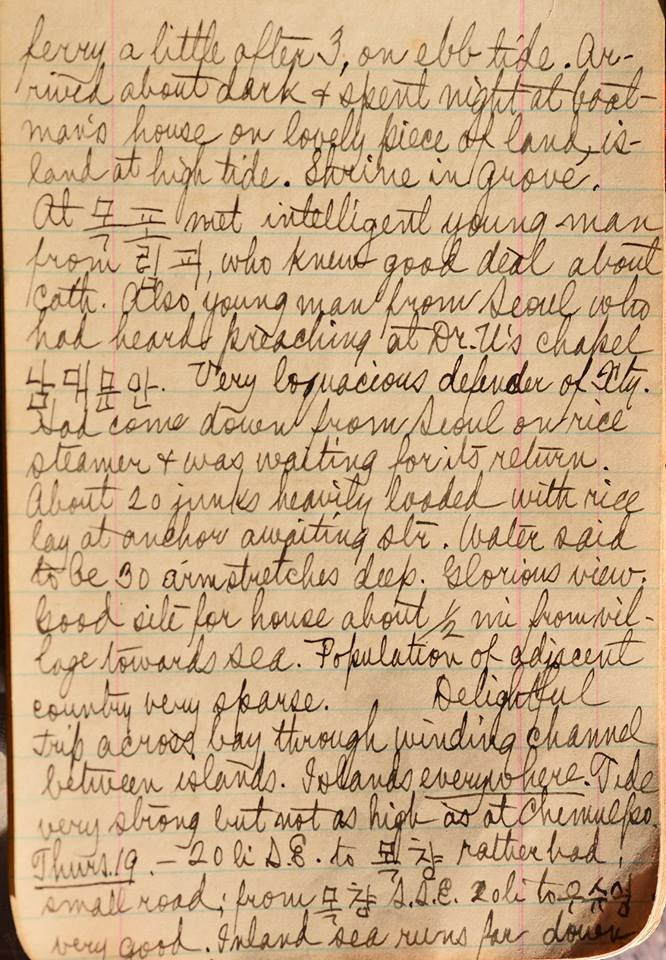 ferry a little after 3, on ebb tide. Ar-
rived about dark & spent night at boat-
man's house on lovely piece of land, is-
land at high tide. Shrine in grove.
At 목포 met intelligent young man
from 리파, who knew good deal about
Cath. Also young man from Seoul who
had heard preaching at Dr. U's chapel
남대문안. Very loquacious defender of Xty.
Had come down from Seoul on rice
steamer & was waiting for its return.
About 20 junks heavily loaded with rice
lay at anchor awaiting str. Water said
to be 30 armstretches deep. Glorious view.
Good site for house about 1/2 mi from vil-
lage towards sea. Population of adjscent
country very sparse. Delightful
trip across bay through winding channel
between islands. Islands everywhere. Tide
very strong but not as high as at Chemulpo.
Thurs. 19. – 20 li S.E. to 목장 rather bad,
small road; from 목장 S.S.E. 20 li to 우수영
very good. Inland sea runs far down